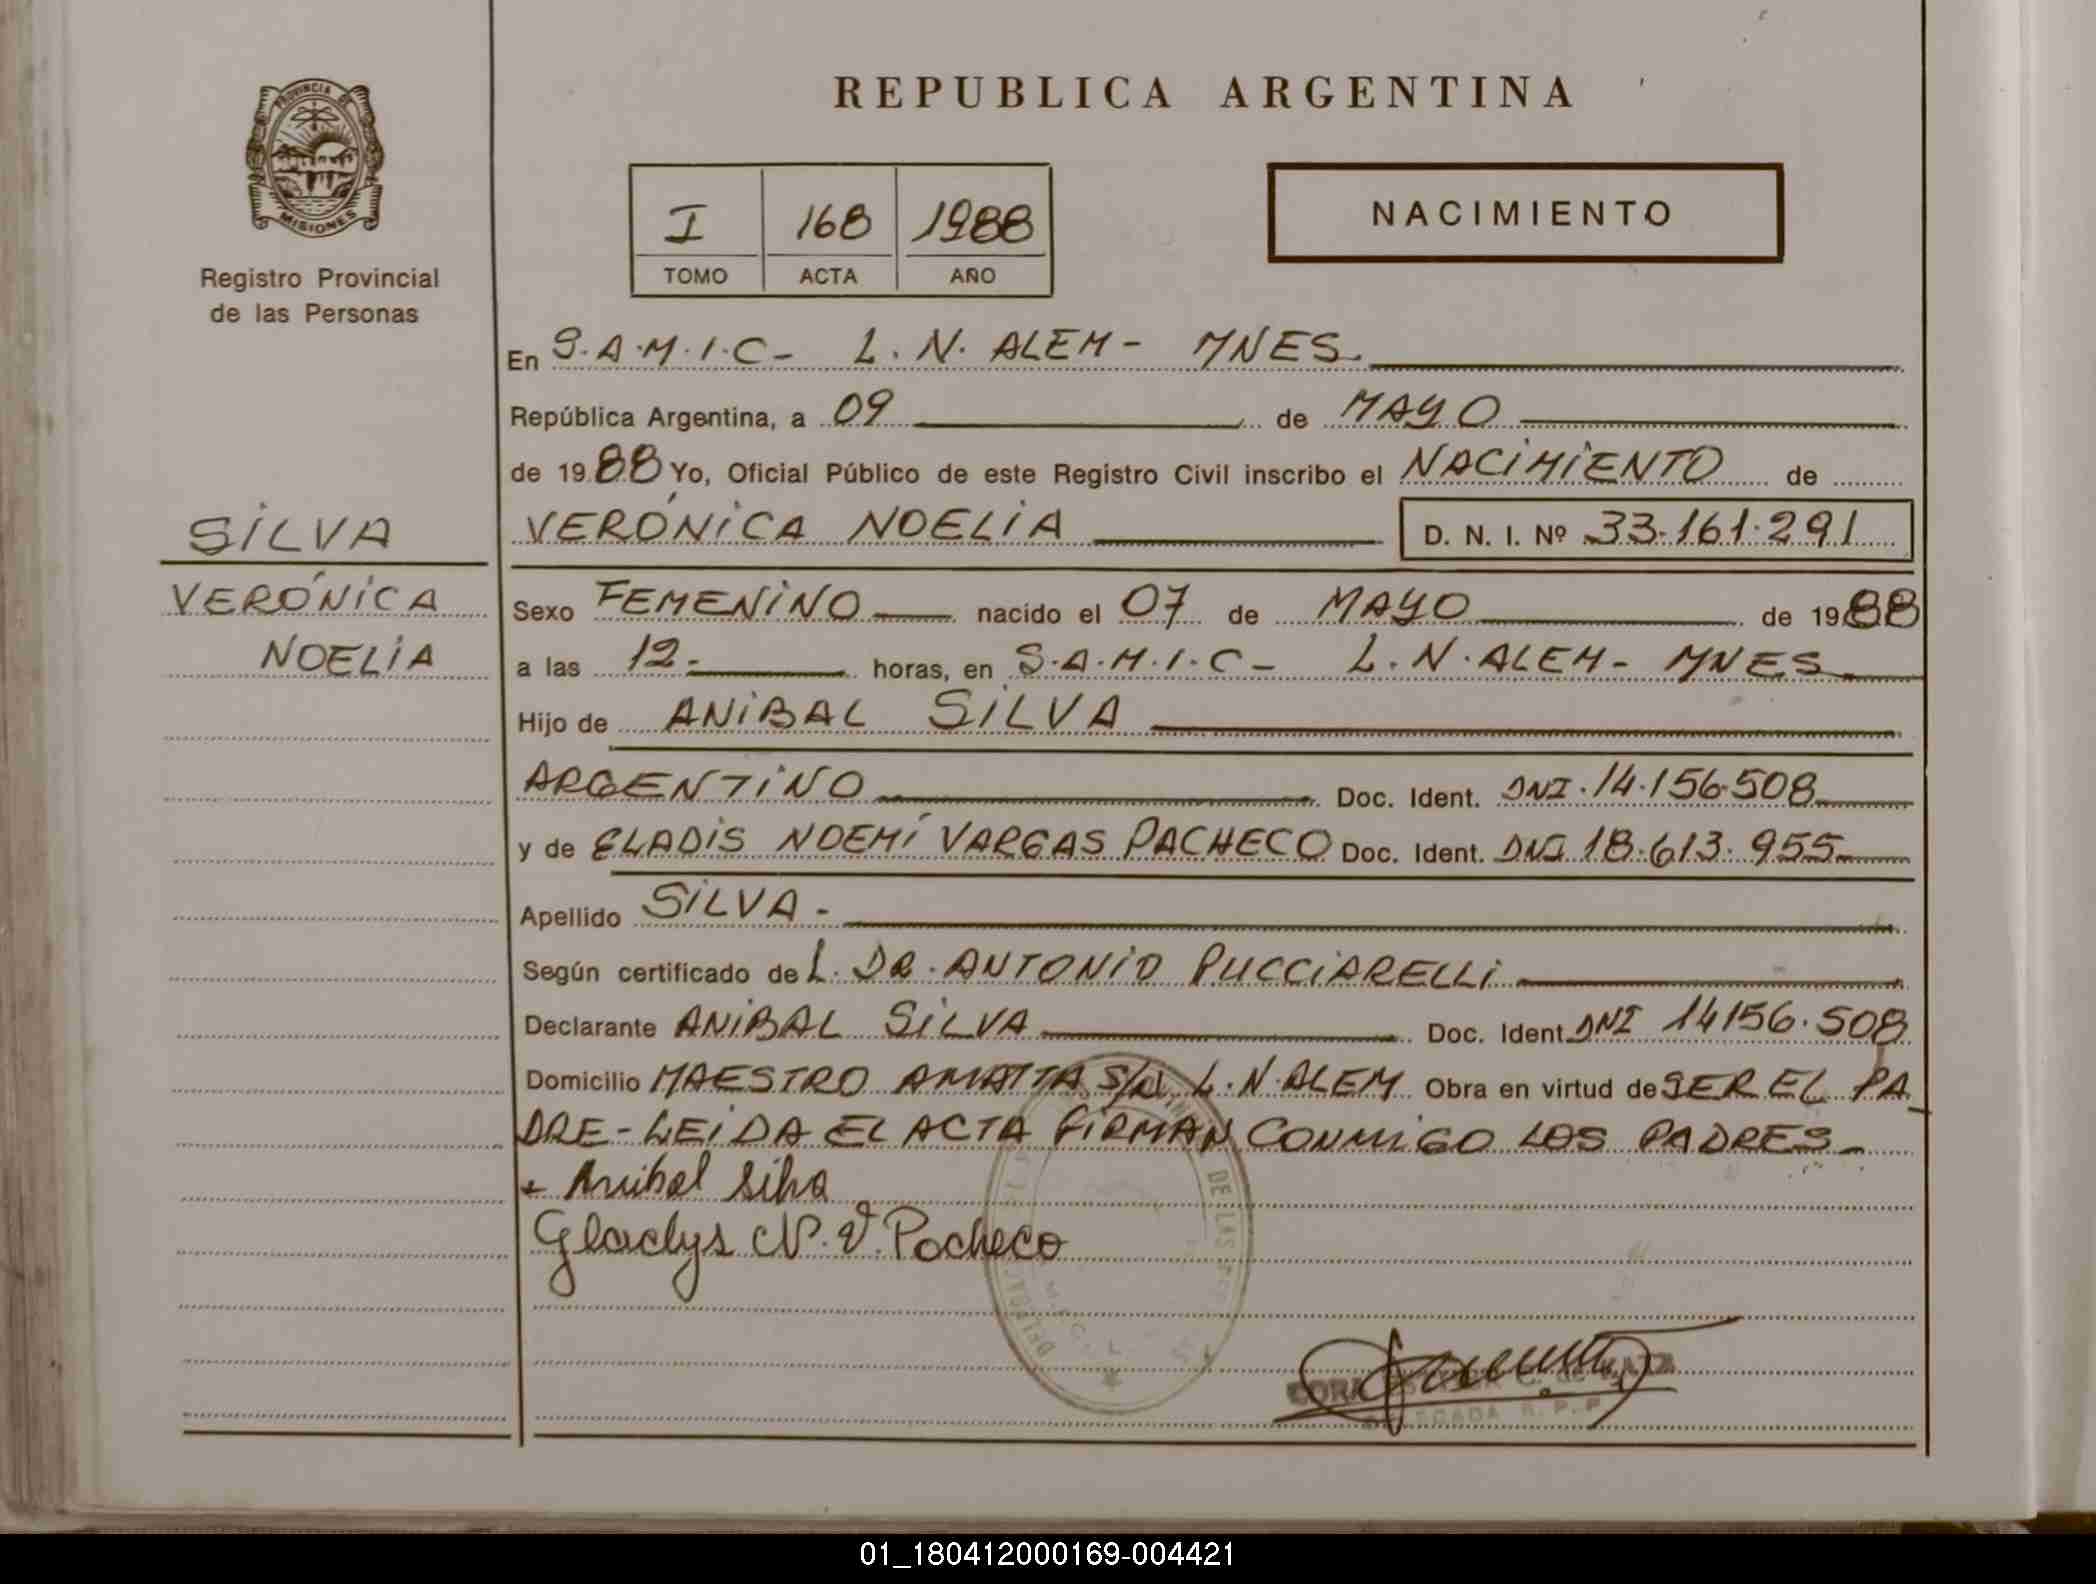 REPUBLICA ARGENTINA
PROVINCIA DE
MISIONES
Registro Provincial
de las Personas
I 168 1988
TOMO ACTA AÑO
NACIMIENTO
En S.A.M.I.C- L.N. ALEM- MNES.
República Argentina, a 09 de MAYO
de 1988 Yo, Oficial Público de este Registro Civil inscribo el NACIMIENTO de
SILVA
VERÓNICA NOELIA D. N. I. Nº 33.161.291
VERÓNICA
NOELIA
Sexo FEMENINO nacido el 07 de MAYO de 1988
a las 12- horas, en S.A.M.I.C- L.N.ALEM- MNES
Hijo de ANIBAL SILVA
ARGENTINO Doc. Ident. DNI.14.156.508
y de GLADIS NOEMÍ VARGAS PACHECO Doc. Ident. DNI 18.613.955
Apellido SILVA-
Según certificado de L. DR. ANTONIO PUCCIARELLI
Declarante ANIBAL SILVA Doc. Ident. DNI 14156.508
Domicilio MAESTRO AMATTA S/N L.N.ALEM Obra en virtud de SER EL PA_
DRE-LEIDA EL ACTA FIRMAN CONMIGO LOS PADRES-
Anibal Silva
Gladys N. V. Pacheco
DE LAS
R. P. P.
01_180412000169-004421